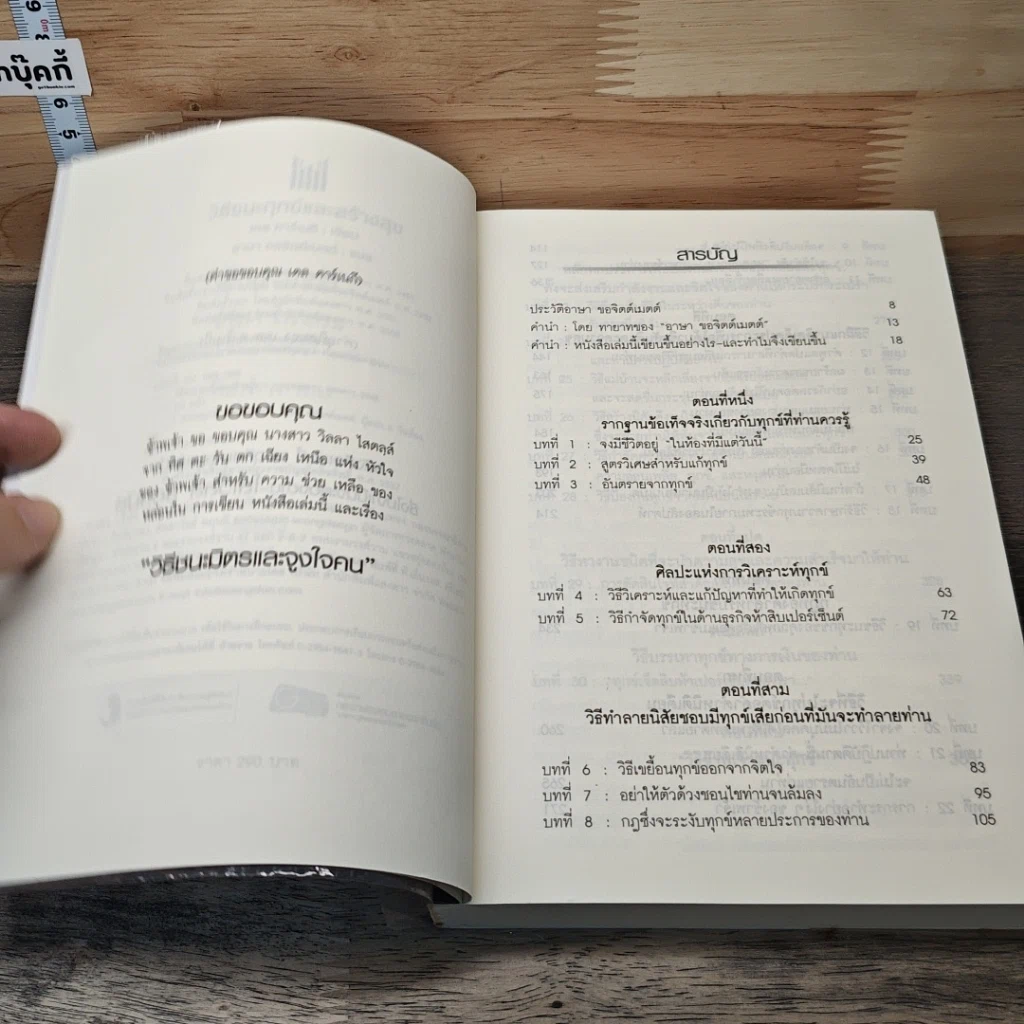 (คำขอขอบคุณ เดล คาร์เนกี)
ขอขอบคุณ
ข้าพเจ้า ขอ ขอบคุณ นางสาว วิลลา ไสตลส์
จาก ทิศ ตะ วัน ตก เฉียง เหนือ แห่ง หัวใจ
ของ ข้าพเจ้า สำหรับ ความ ช่วย เหลือ ของ
หล่อนใน การเขียน หนังสือเล่มนี้ และเรื่อง
"วิธีชนะมิตรและจูงใจคน"
สารบัญ
ประวัติอาษา ขอจิตต์เมตต์ 8
คำนำ : โดย ทายาทของ "อาษา ขอจิตต์เมตต์" 13
คำนำ : หนังสือเล่มนี้เขียนขึ้นอย่างไร-และทำไมจึงเขียนขึ้น 18
ตอนที่หนึ่ง
รากฐานข้อเท็จจริงเกี่ยวกับทุกข์ที่ท่านควรรู้
บทที่ 1 : จงมีชีวิตอยู่ "ในห้องที่มีแต่วันนี้" 25
บทที่ 2 : สูตรวิเศษสำหรับแก้ทุกข์ 39
บทที่ 3 : อันตรายจากทุกข์ 48
ตอนที่สอง
ศิลปะแห่งการวิเคราะห์ทุกข์
บทที่ 4 : วิธีวิเคราะห์และแก้ปัญหาที่ทำให้เกิดทุกข์ 63
บทที่ 5 : วิธีกำจัดทุกข์ในด้านธุรกิจห้าสิบเปอร์เซ็นต์ 72
ตอนที่สาม
วิธีทำลายนิสัยชอบมีทุกข์เสียก่อนที่มันจะทำลายท่าน
บทที่ 6 : วิธีเขยื้อนทุกข์ออกจากจิตใจ 83
บทที่ 7 : อย่าให้ตัวด้วงชอนไชท่านจนล้มลง 95
บทที่ 8 : กฎซึ่งจะระงับทุกข์หลายประการของท่าน 105